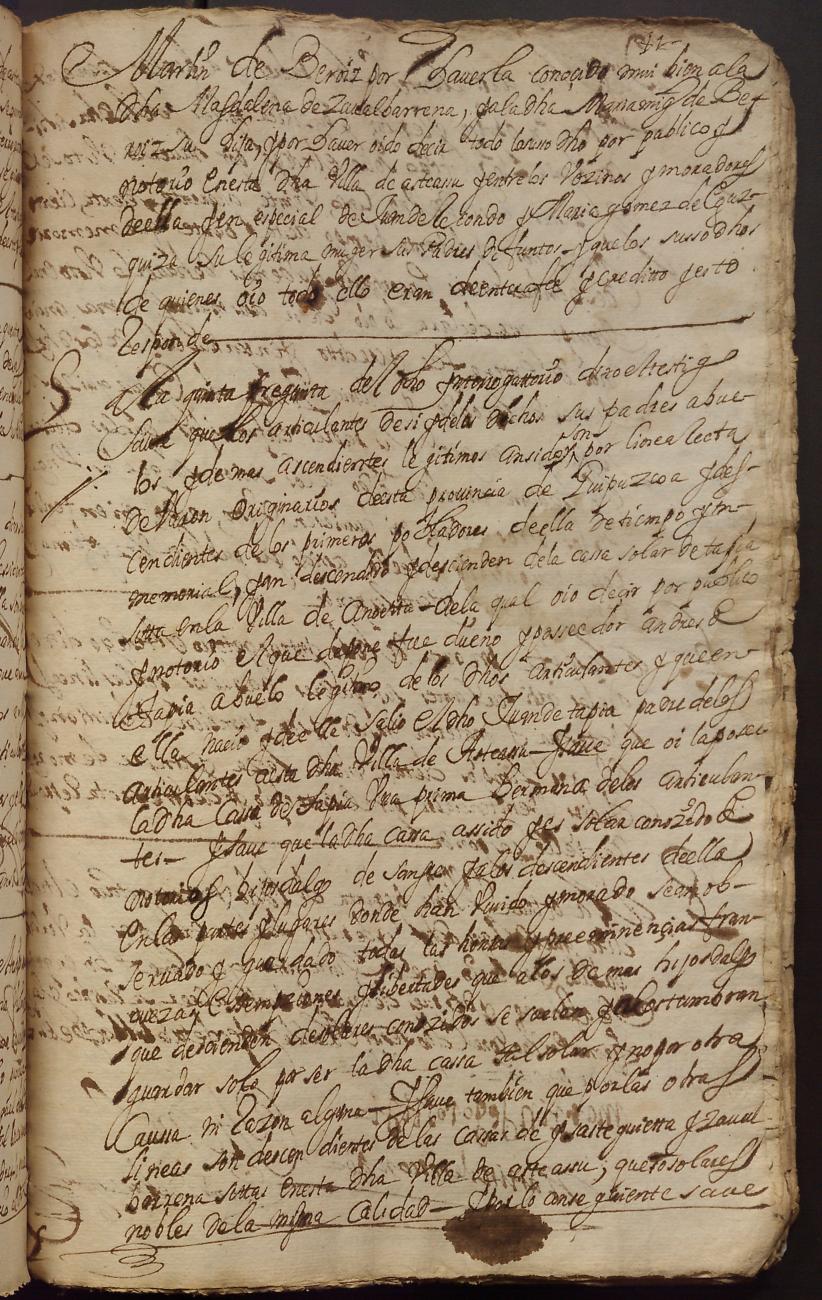 42
Martin de Beroiz por haverla conocido mui bien a la
dha Magdalena de Zavalbarrena, y a la dha Maria miz de Be-
roiz su hija, y por haver oido decir todo lo suso dho por publico y
notorio en esta dha Villa de asteasu y entre los Vezinos y moradores
de ella y en especial de Juan de le condo y Maria gomez de
quiza su legitima muger sus Padres difuntos y que los susso dhos
de quienes oio todo ello eran de entera fe y credito y esto
Responde
5 A la quinta Pregunta del dho Ynterrogattorio dixo el testigo
save que los articulantes de si y de los dichos sus padres abue-
los y demas ascendientes legitimos an sido y son por linea recta
de Varon originarios de esta provincia de Guipuzcoa y des-
cendientes de los primeros pobladores de ella de tiempo ym-
memorial, y an descendido y descienden de la cassa solar de tapia
sitta en la Villa de Anoetta de la qual oio decir por publico
y notorio el que depone fue dueño y posseedor andres de
tapia abuelo legitimo de los dhos articulantes y que en
ella nacio y de ella salio el dho Juan de tapia padre de los
articulantes a esta dha Villa de Asteasu Y save que oi la posee
la dha Cassa de tapia Una prima hermana de los articulan-
tes Y save que la dha cassa a ssido y es solar conozido de
notorios hijosdalgo de sangre y a los descendientes de ella
en las partes y lugares donde han vivido y morado se an ob-
servado y guardado todas las honras y preeminencias fran-
quezas essempciones y libertades que a los demas hijosdalgo
que descienden de solares conozidos se suelen y acostumbran
guardar solo por ser la dha cassa tal solar y no por otra
Caussa ni Razon alguna Y save tambien que por las otras
lineas son descendientes de las cassas de ysasteguieta y Zaval
barrena sittas en esta dha Villa de asteasu, que son solares
nobles de la misma Calidad Y por lo conseguiente save